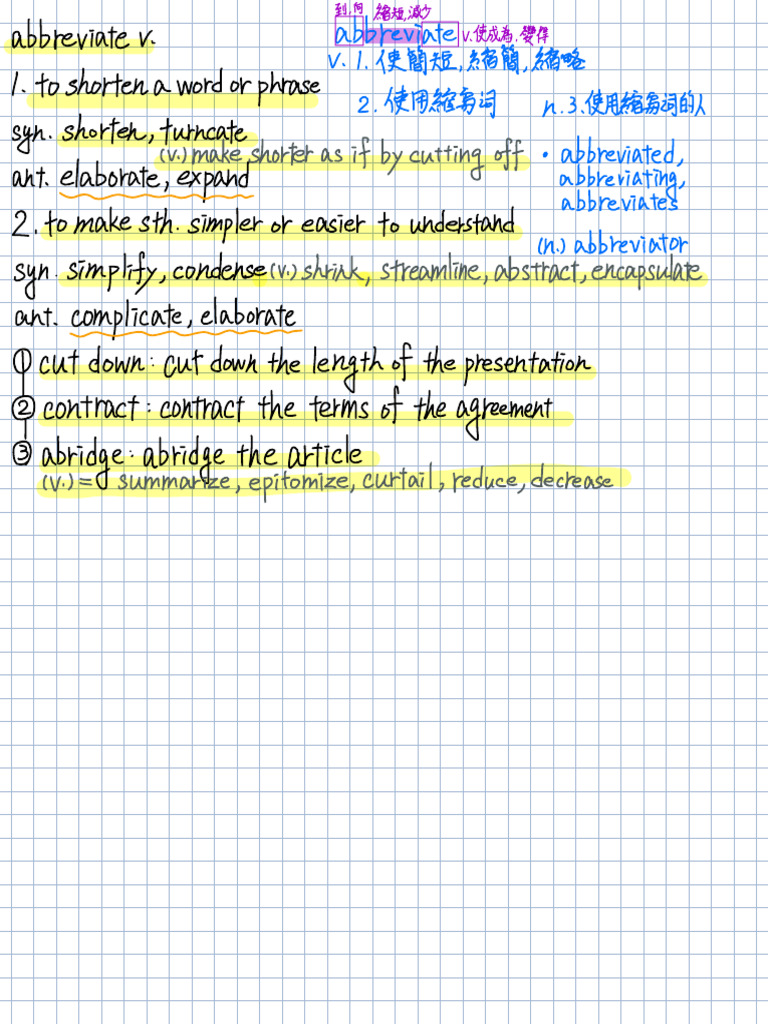 abbreviate v.
到,向 縮短,減少
abbreviate v.使成為,變得
v. 1. 使簡短,縮簡,縮略
1. to shorten a word or phrase
2. 使用縮寫词 n. 3.使用縮寫词的人
syn. shorten, turncate
(v.) make shorter as if by cutting off
• abbreviated,
abbreviating,
abbreviates
ant. elaborate, expand
2. to make sth. simpler or easier to understand
(n.) abbreviator
syn. simplify, condense (v.) shriak, streamline, abstract, encapsulate
ant. complicate, elaborate
① cut down: cut down the length of the presentation
② contract: contract the terms of the agreement
③ abridge: abridge the article
(v.) = summarize, epitomize, curtail, reduce, decrease